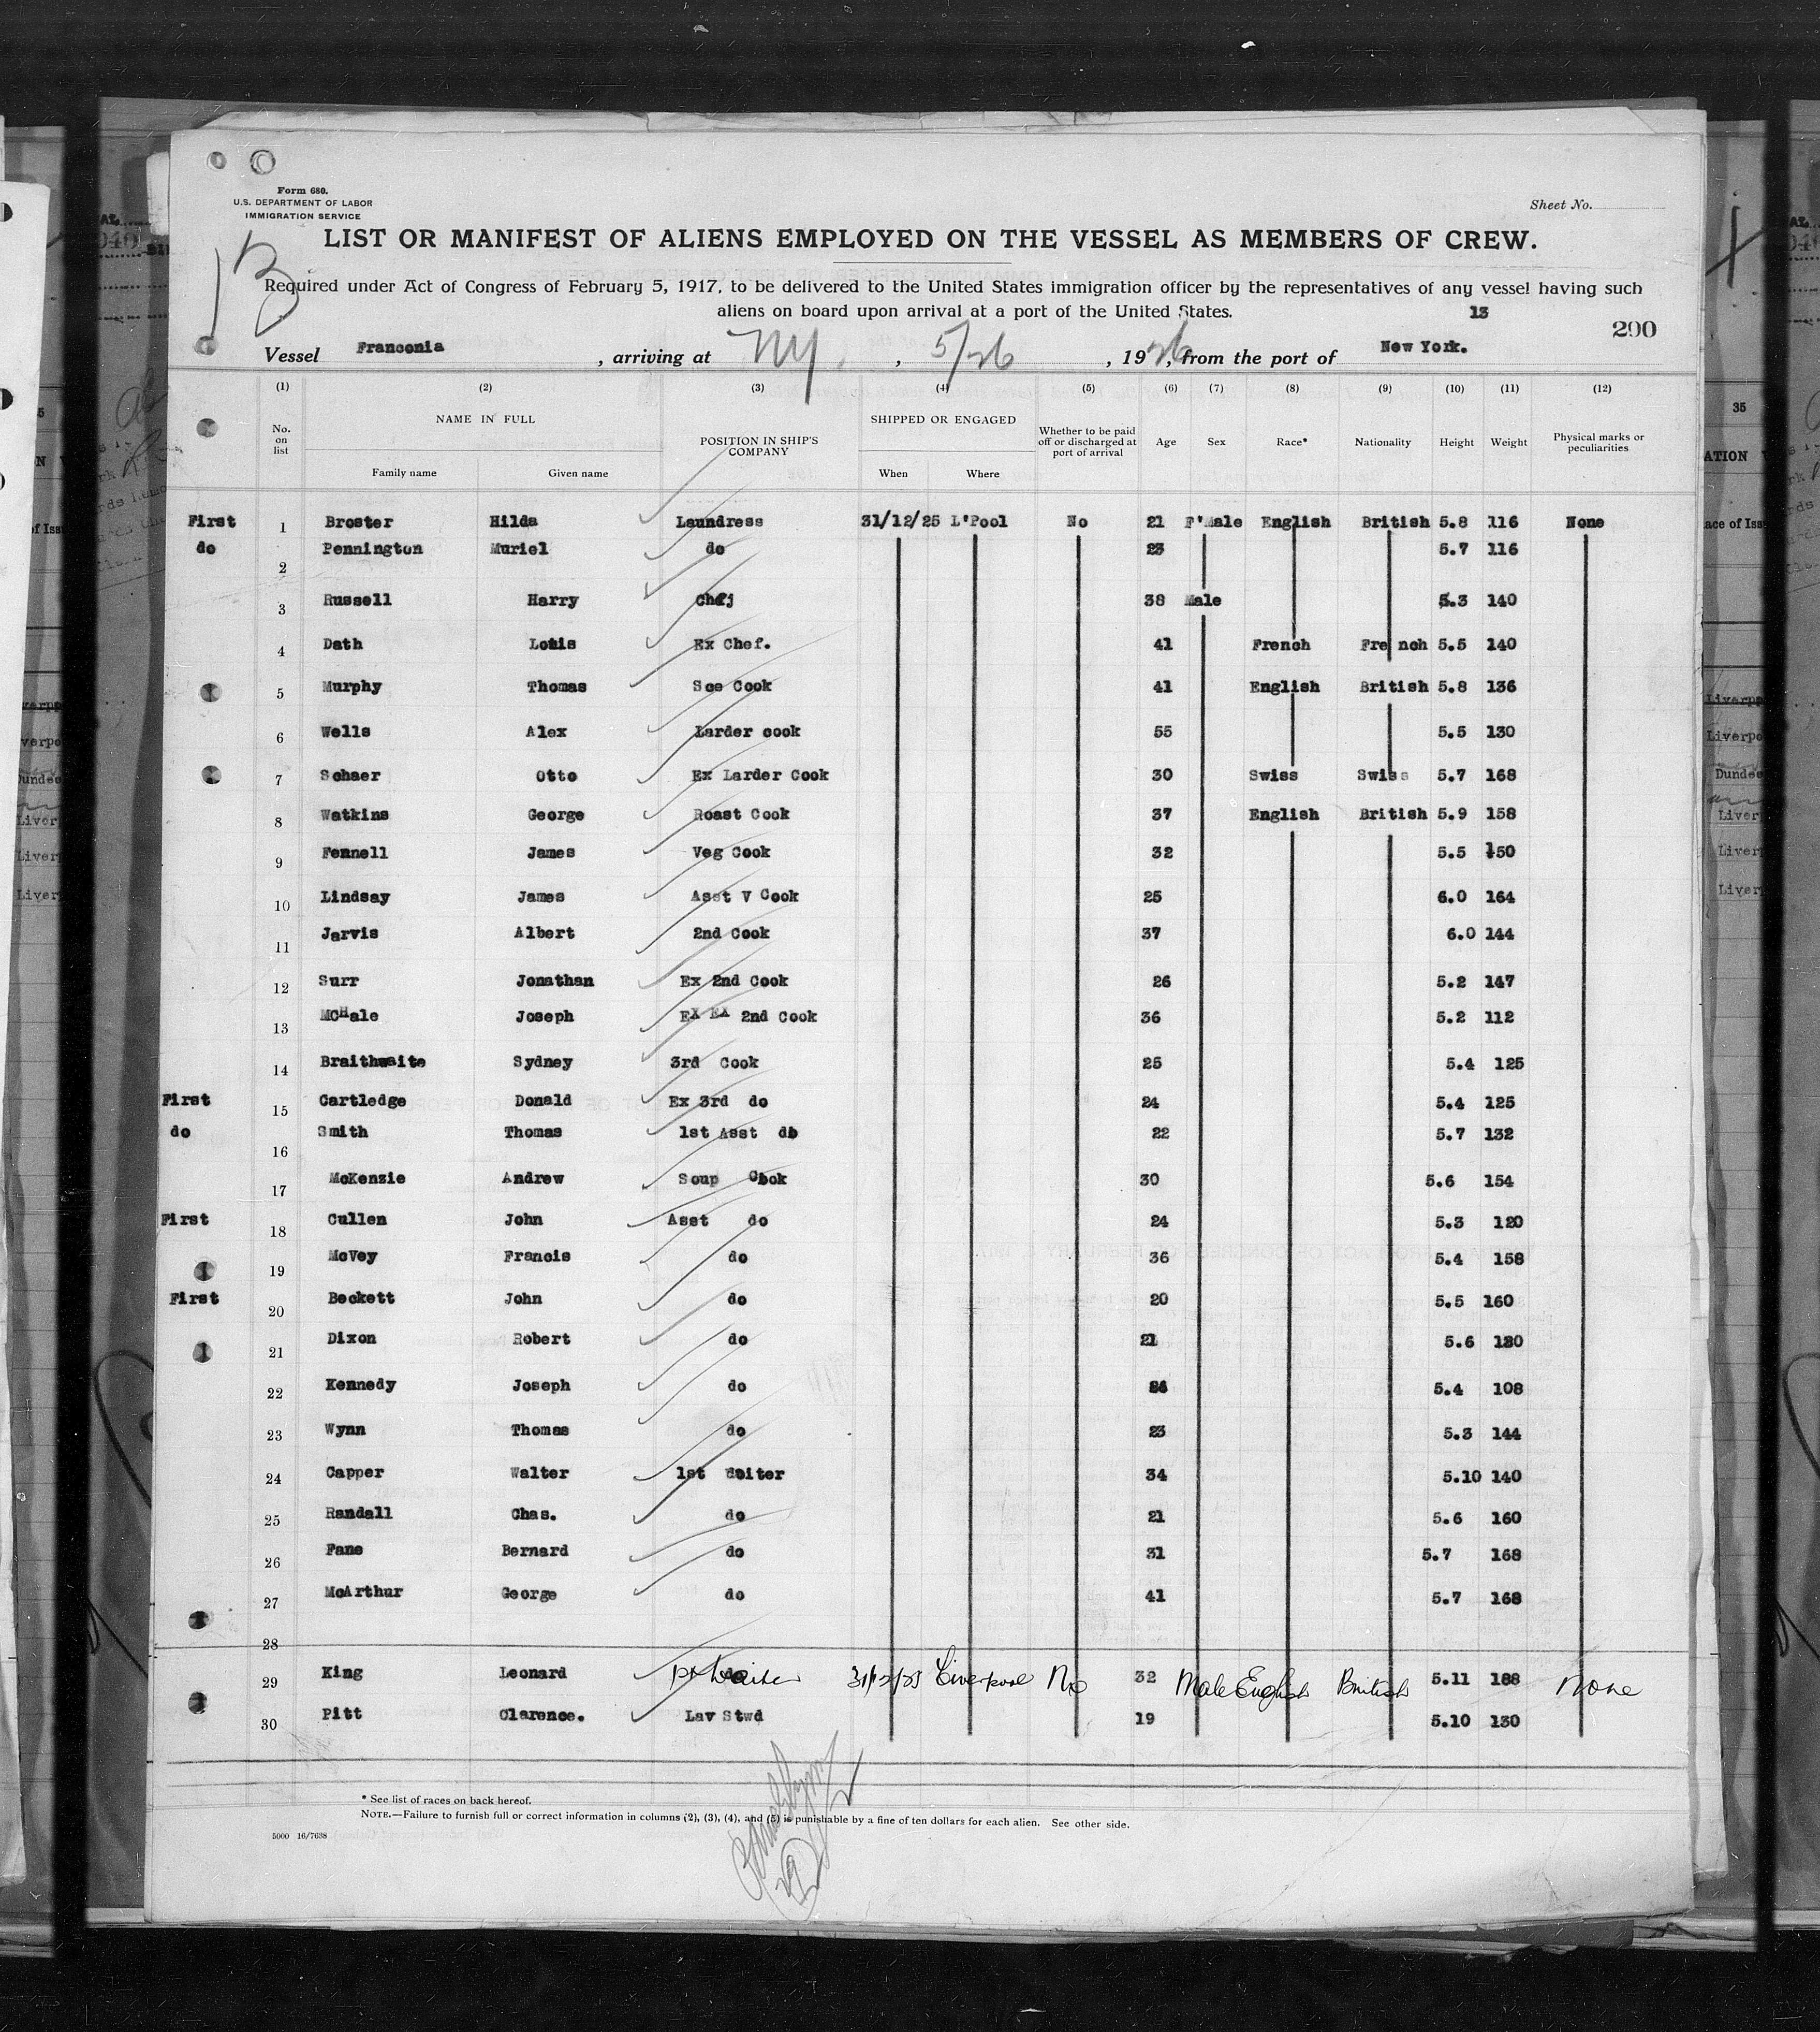 Form 680.
U.S. DEPARTMENT OF LABOR
IMMIGRATION SERVICE
Sheet No.
LIST OR MANIFEST OF ALIENS EMPLOYED ON THE VESSEL AS MEMBERS OF CREW.
Required under Act of Congress of February 5, 1917, to be delivered to the United States immigration officer by the representatives of any vessel having such
aliens on board upon arrival at a port of the United States.
13
290
Vessel Franconia, arriving at NY., 5/26, 1926, from the port of New York.
(1) (2) (3) (4) (5) (6) (7) (8) (9) (10) (11) (12)
No. on list NAME IN FULL Family name Given name POSITION IN SHIP'S COMPANY SHIPPED OR ENGAGED When Where Whether to be paid off or discharged at port of arrival Age Sex Race* Nationality Height Weight Physical marks or peculiarities
First 1 Broster Hilda Laundress 31/12/25 L'Pool No 21 F'Male English British 5.8 116 None
do 2 Pennington Muriel do 23 5.7 116
3 Russell Harry Chefj 38 Male 5.3 140
4 Dath Louis Ex Chef. 41 French French 5.5 140
5 Murphy Thomas Sce Cook 41 English British 5.8 136
6 Wells Alex Larder cook 55 5.5 130
7 Schaer Otto Ex Larder Cook 30 Swiss Swiss 5.7 168
8 Watkins George Roast Cook 37 English British 5.9 158
9 Fennell James Veg Cook 32 5.5 150
10 Lindsay James Asst V Cook 25 6.0 164
11 Jarvis Albert 2nd Cook 37 6.0 144
12 Surr Jonathan Ex 2nd Cook 26 5.2 147
13 McHale Joseph EX EX 2nd Cook 36 5.2 112
14 Braithwaite Sydney 3rd Cook 25 5.4 125
First 15 Cartledge Donald Ex 3rd do 24 5.4 125
do 16 Smith Thomas 1st Asst do 22 5.7 132
17 McKenzie Andrew Soup Cook 30 5.6 154
First 18 Cullen John Asst do 24 5.3 120
19 McVey Francis do 36 5.4 158
First 20 Beckett John do 20 5.5 160
21 Dixon Robert do 21 5.6 120
22 Kennedy Joseph do 5.4 108
23 Wynn Thomas do 23 5.3 144
24 Capper Walter 1st Waiter 34 5.10 140
25 Randall Chas. do 21 5.6 160
26 Fane Bernard do 31 5.7 168
27 McArthur George do 41 5.7 168
28
29 King Leonard 1st Waiter 31/12/25 Liverpool No 32 Male English British 5.11 188 None
30 Pitt Clarence. Lav Stwd 19 5.10 130
* See list of races on back hereof.
NOTE.—Failure to furnish full or correct information in columns (2), (3), (4), and (5) is punishable by a fine of ten dollars for each alien. See other side.
5000 16/7638